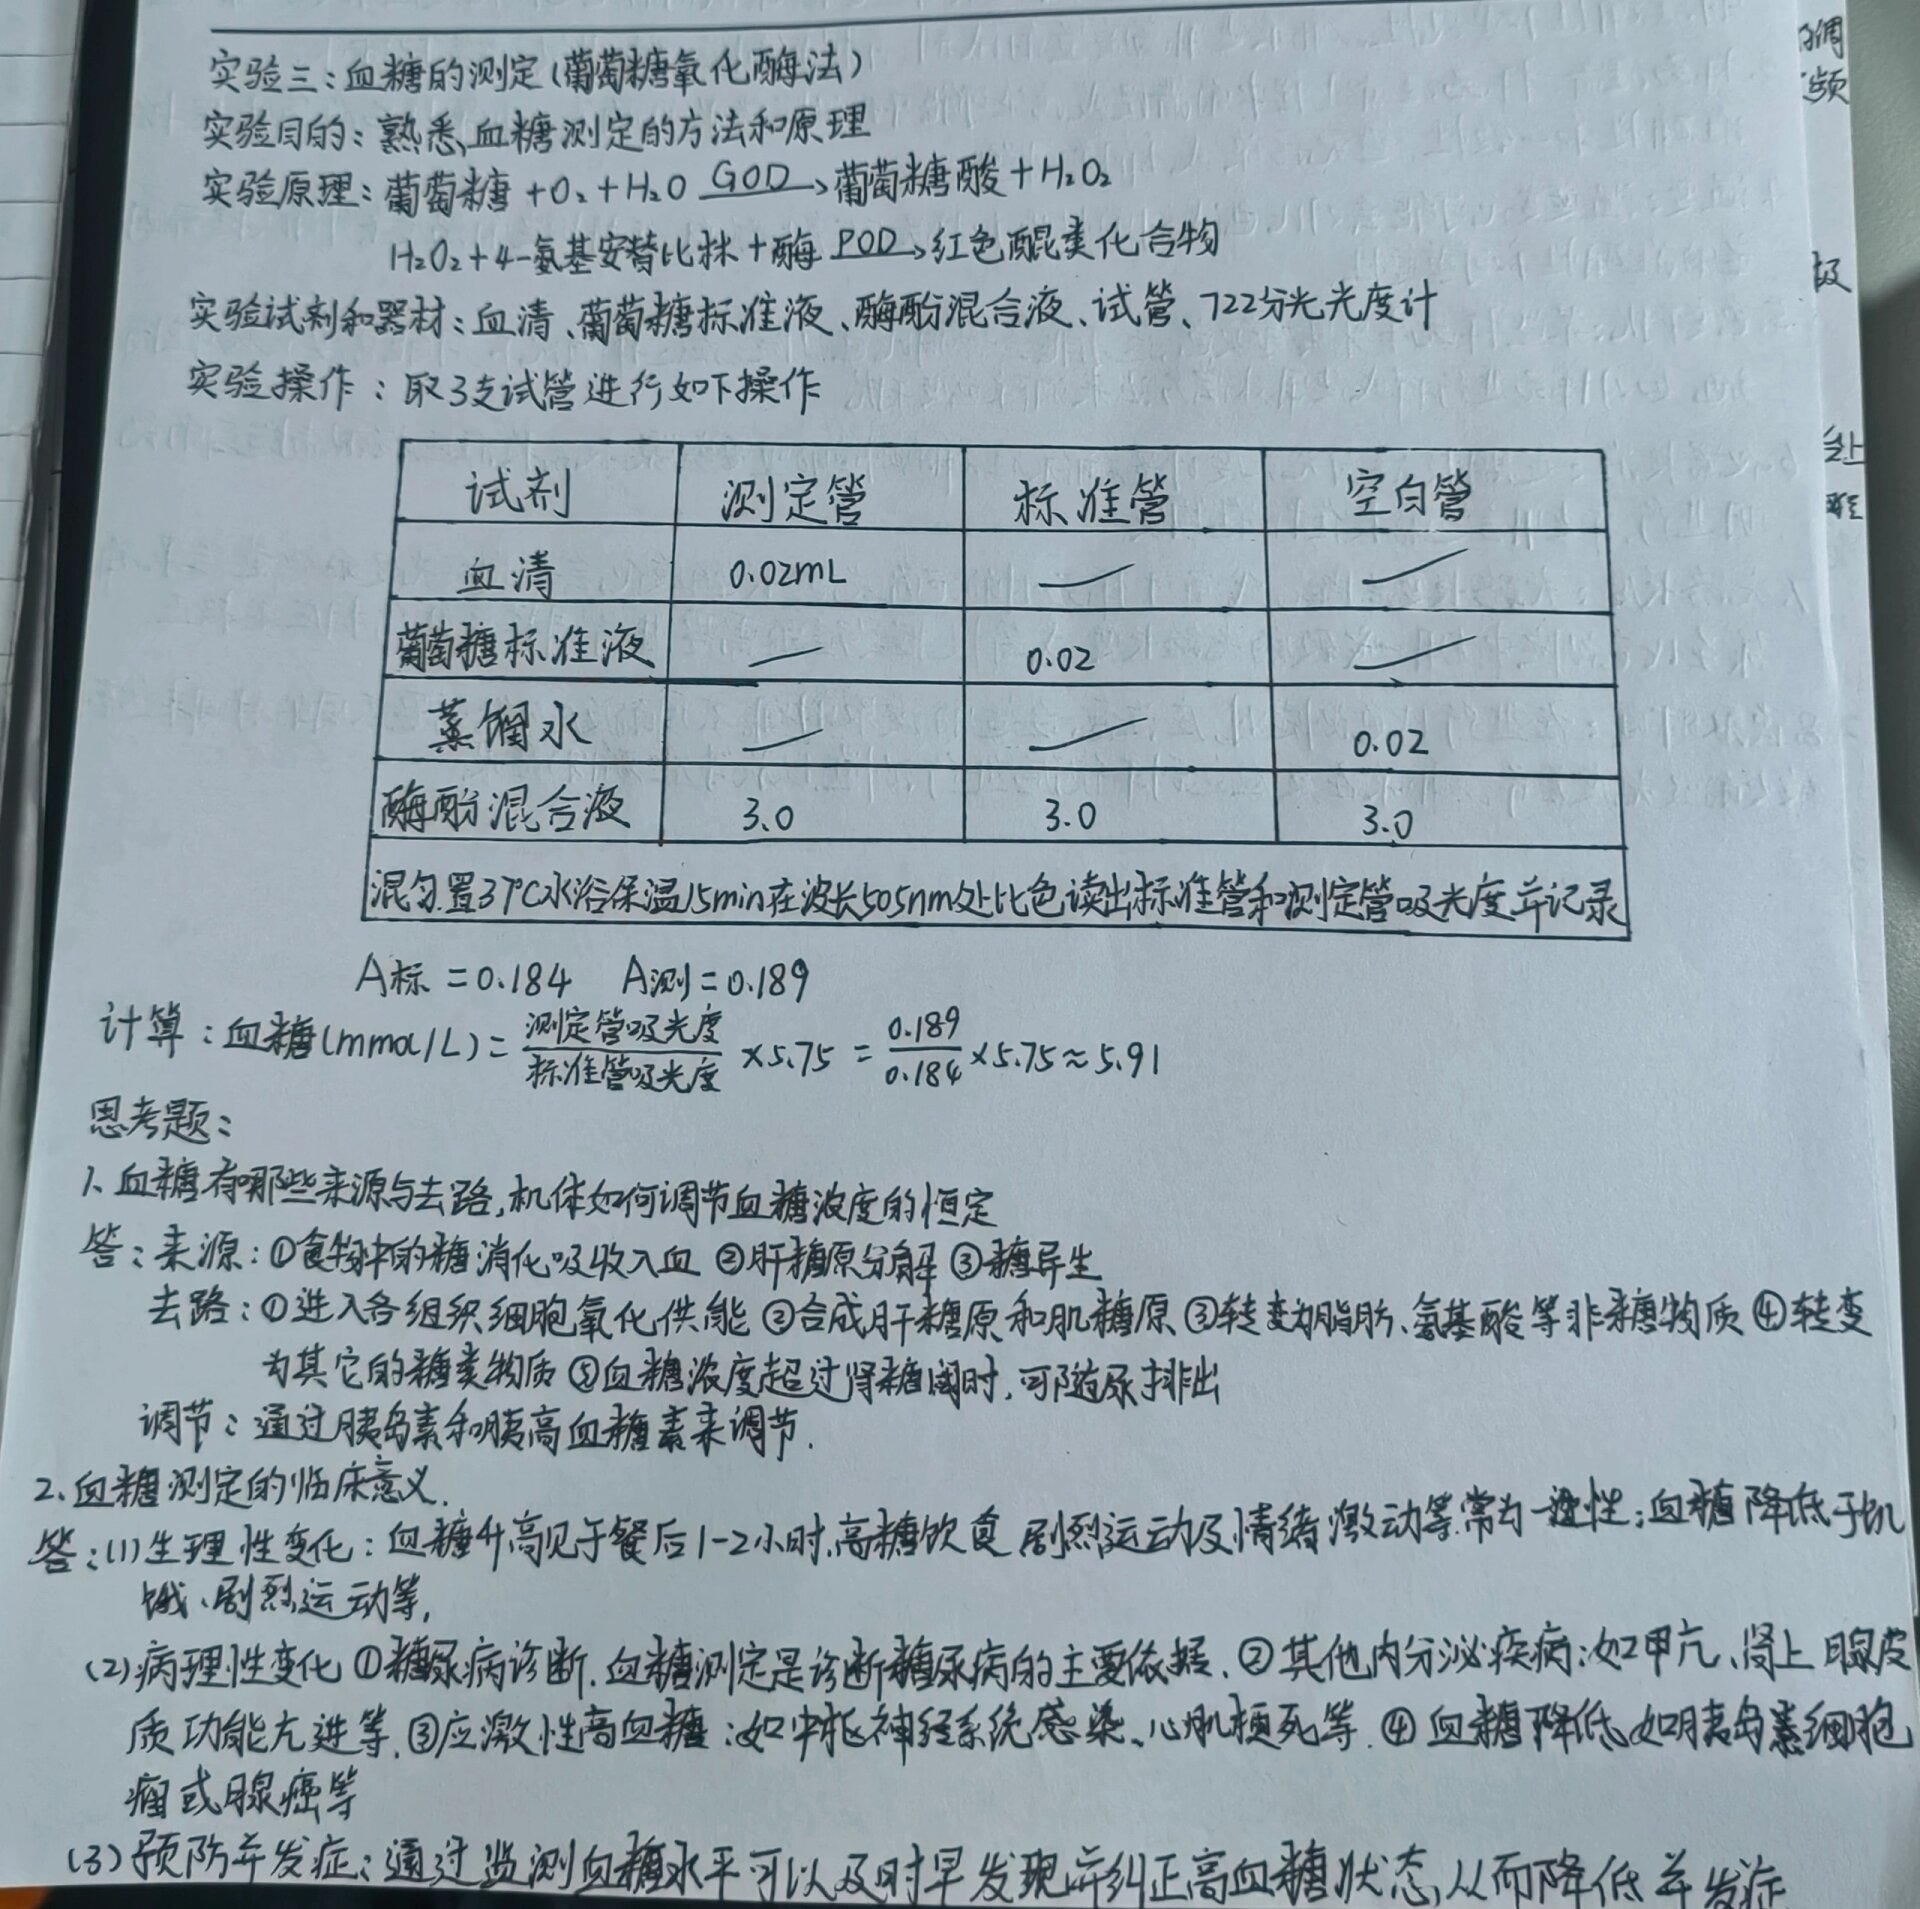 实验三：血糖的测定(葡萄糖氧化酶法)
实验目的：熟悉血糖测定的方法和原理
实验原理：葡萄糖+O₂+H₂O GOD→葡萄糖酸+H₂O₂
H₂O₂+4-氨基安替比林+酶 POD→红色醌类化合物
实验试剂和器材：血清、葡萄糖标准液、酶酚混合液、试管、722分光光度计
实验操作：取3支试管进行如下操作
试剂 测定管 标准管 空白管
血清 0.02mL — —
葡萄糖标准液 — 0.02 —
蒸馏水 — — 0.02
酶酚混合液 3.0 3.0 3.0
混匀置37℃水浴保温15min在波长505nm处比色读出标准管和测定管吸光度并记录
A标=0.184 A测=0.189
计算：血糖(mmol/L)=测定管吸光度/标准管吸光度×5.75=0.189/0.184×5.75≈5.91
思考题：
1、血糖有哪些来源与去路,机体如何调节血糖浓度的恒定
答：来源：①食物中的糖消化吸收入血 ②肝糖原分解 ③糖异生
去路：①进入各组织细胞氧化供能 ②合成肝糖原和肌糖原 ③转变为脂肪、氨基酸等非糖物质 ④转变
为其它的糖类物质 ⑤血糖浓度超过肾糖阈时,可随尿排出
调节：通过胰岛素和胰高血糖素来调节.
2、血糖测定的临床意义.
答：(1)生理性变化：血糖升高见于餐后1-2小时,高糖饮食 剧烈运动及情绪激动等常为一过性；血糖降低于饥
饿、剧烈运动等,
(2)病理性变化 ①糖尿病诊断.血糖测定是诊断糖尿病的主要依据. ②其他内分泌疾病:如甲亢、肾上腺皮
质功能亢进等.③应激性高血糖：如中枢神经系统感染、心肌梗死等.④血糖降低 如胰岛素细胞
瘤或腺癌等
(3)预防并发症：通过监测血糖水平可以及时早发现并纠正高血糖状态,从而降低并发症
调
频
极
处